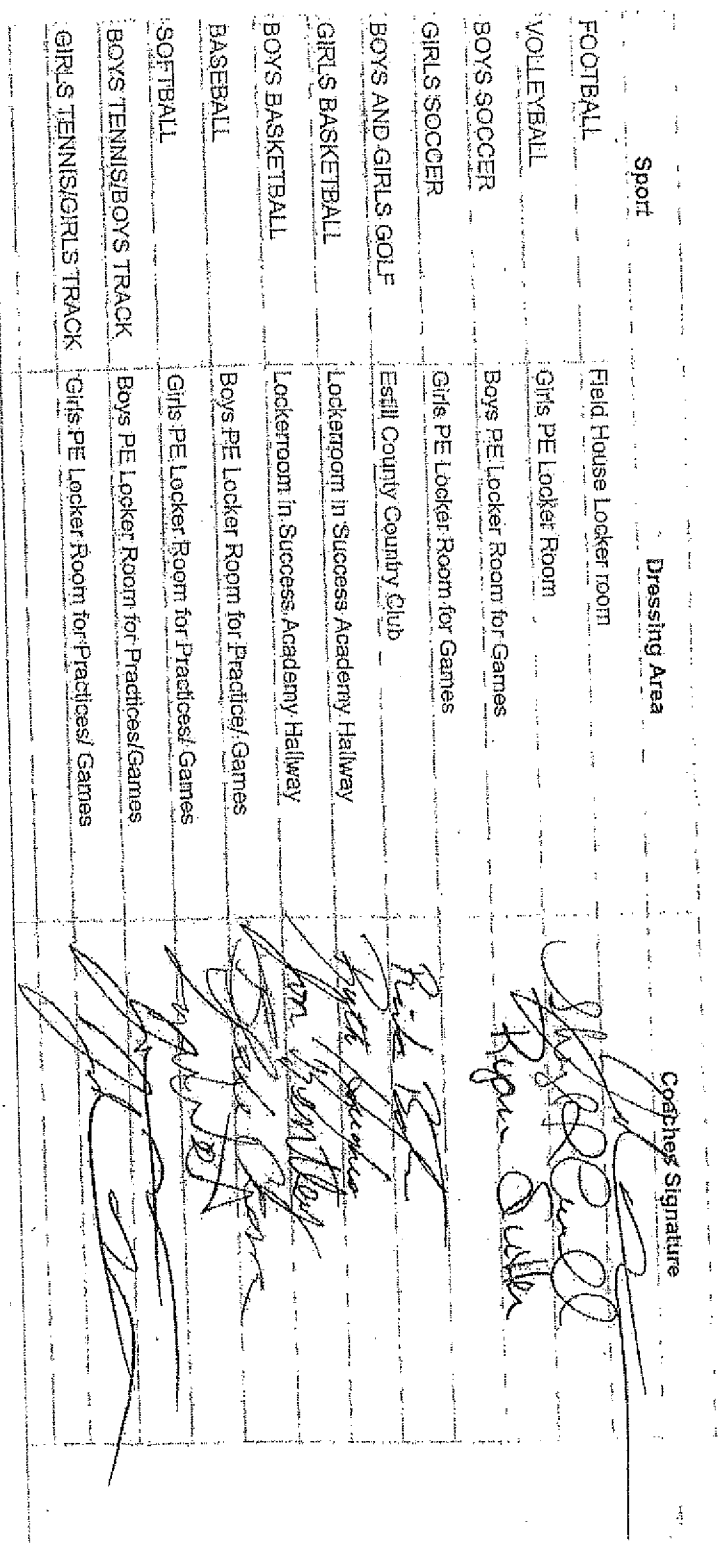 Sport Dressing Area Coaches Signature
FOOTBALL Field House Locker room
VOLLEYBALL Girls PE Locker Room
BOYS SOCCER Boys PE Locker Room for Games Ryan
GIRLS SOCCER Girls PE Locker Room for Games
BOYS AND GIRLS GOLF Estill County Country Club
GIRLS BASKETBALL Lockerroom in Success Academy Hallway
BOYS BASKETBALL Lockerroom in Success Academy Hallway Jon Bentley
BASEBALL Boys PE Locker Room for Practice/ Games
SOFTBALL Girls PE Locker Room for Practices/ Games
BOYS TENNIS/BOYS TRACK Boys PE Locker Room for Practices/Games
GIRLS TENNIS/GIRLS TRACK Girls PE Locker Room for Practices/ Games